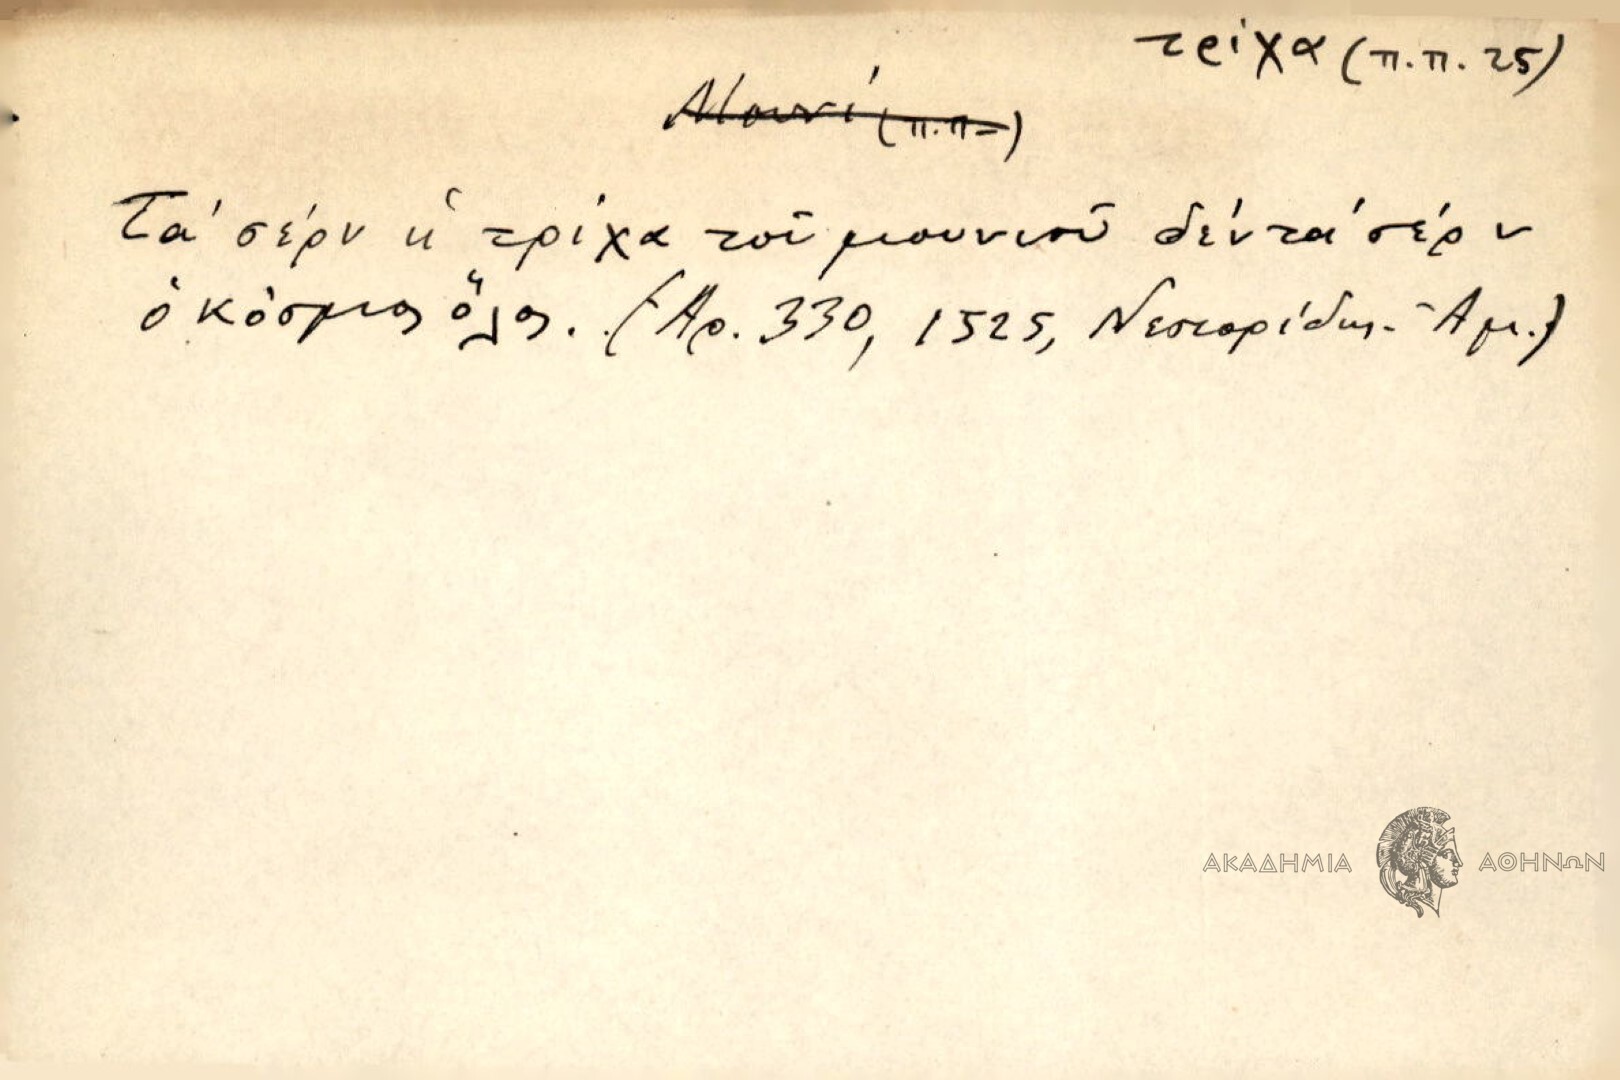 τρίχα (π.π. 25)
Μουνί (π.π.)
Τά σέρν ἡ τρίχα τοῦ μουνιοῦ δέν τά σέρν
ὁ κόσμος ὅλος. (Ἀρ. 330, 1525, Νεστορίδης - Ἀμ.)
ΑΚΑΔΗΜΙΑ ΑΘΗΝΩΝ